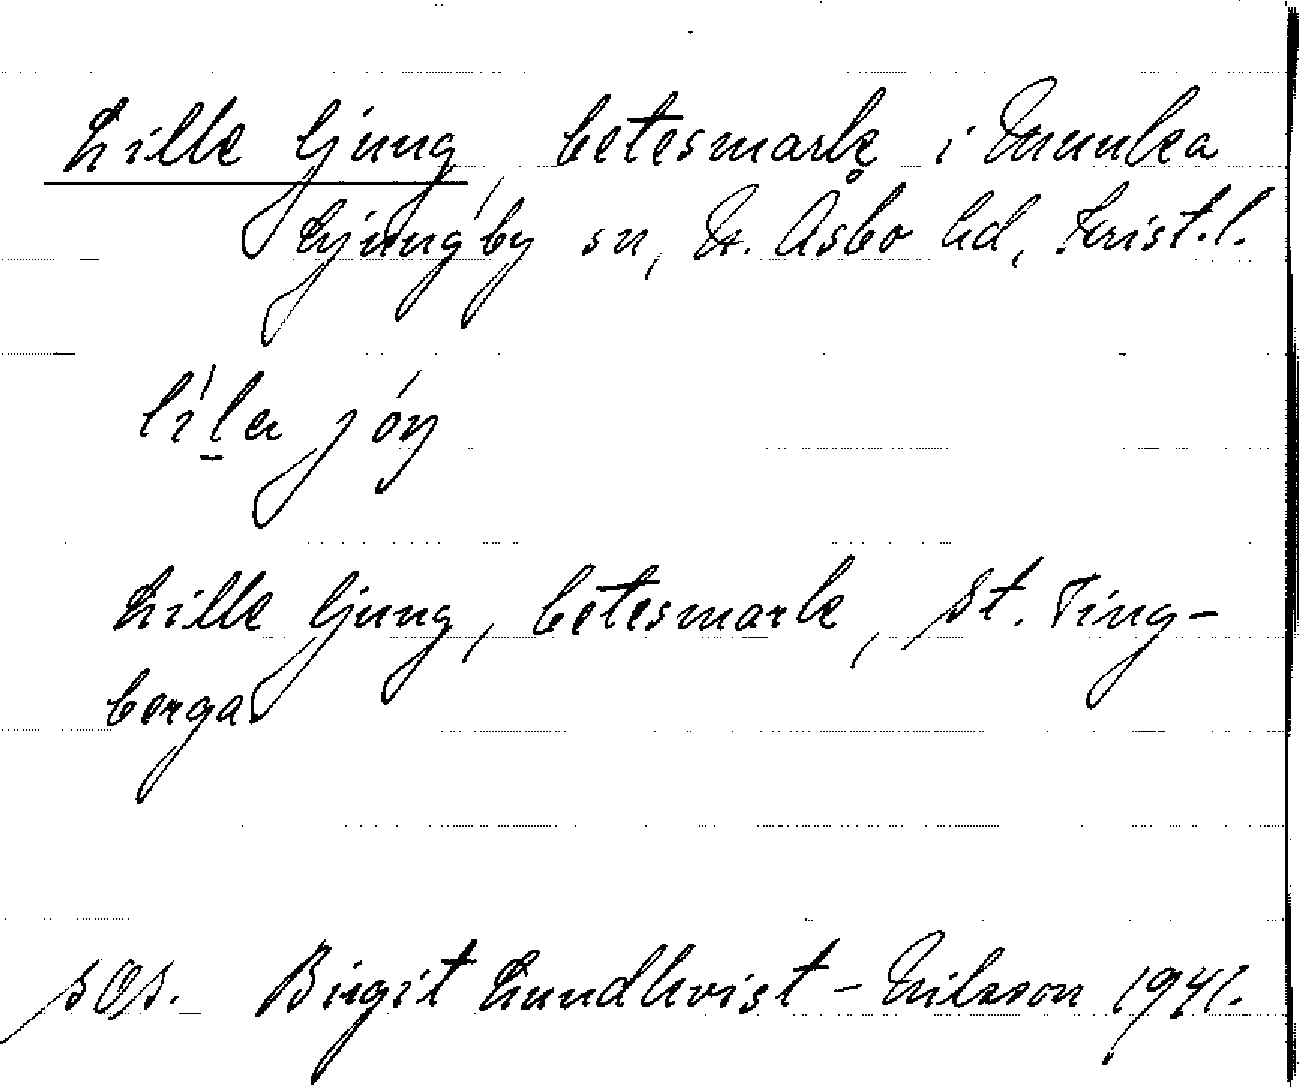 Lille ljung, betesmark i Munka
Ljungby sn, N. Åsbo hd, Krist.l.
lila jóŋ
Lille ljung, betesmark, St. Ting-
berga
SOS. Birgit Lundkvist - Nilsson 1941.